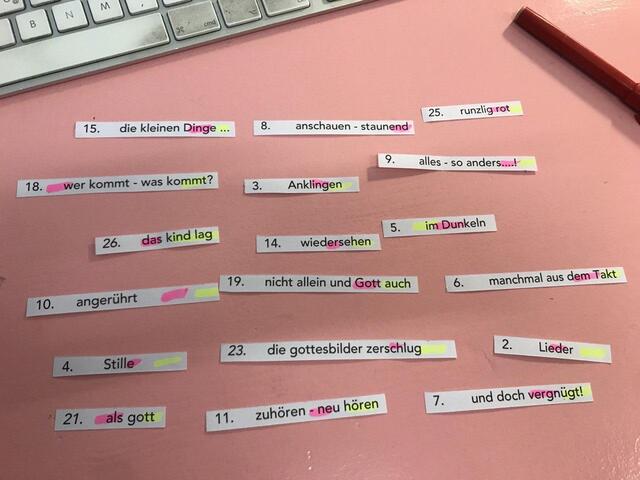 B N M
15. die kleinen Dinge ...
8. anschauen - staunend
25. runzlig rot
9. alles - so anders....!
18. wer kommt - was kommt?
3. Anklingen
5. im Dunkeln
26. das kind lag
14. wiedersehen
19. nicht allein und Gott auch
6. manchmal aus dem Takt
10. angerührt
23. die gottesbilder zerschlug
2. Lieder
4. Stille
7. und doch vergnügt!
21. als gott
11. zuhören - neu hören